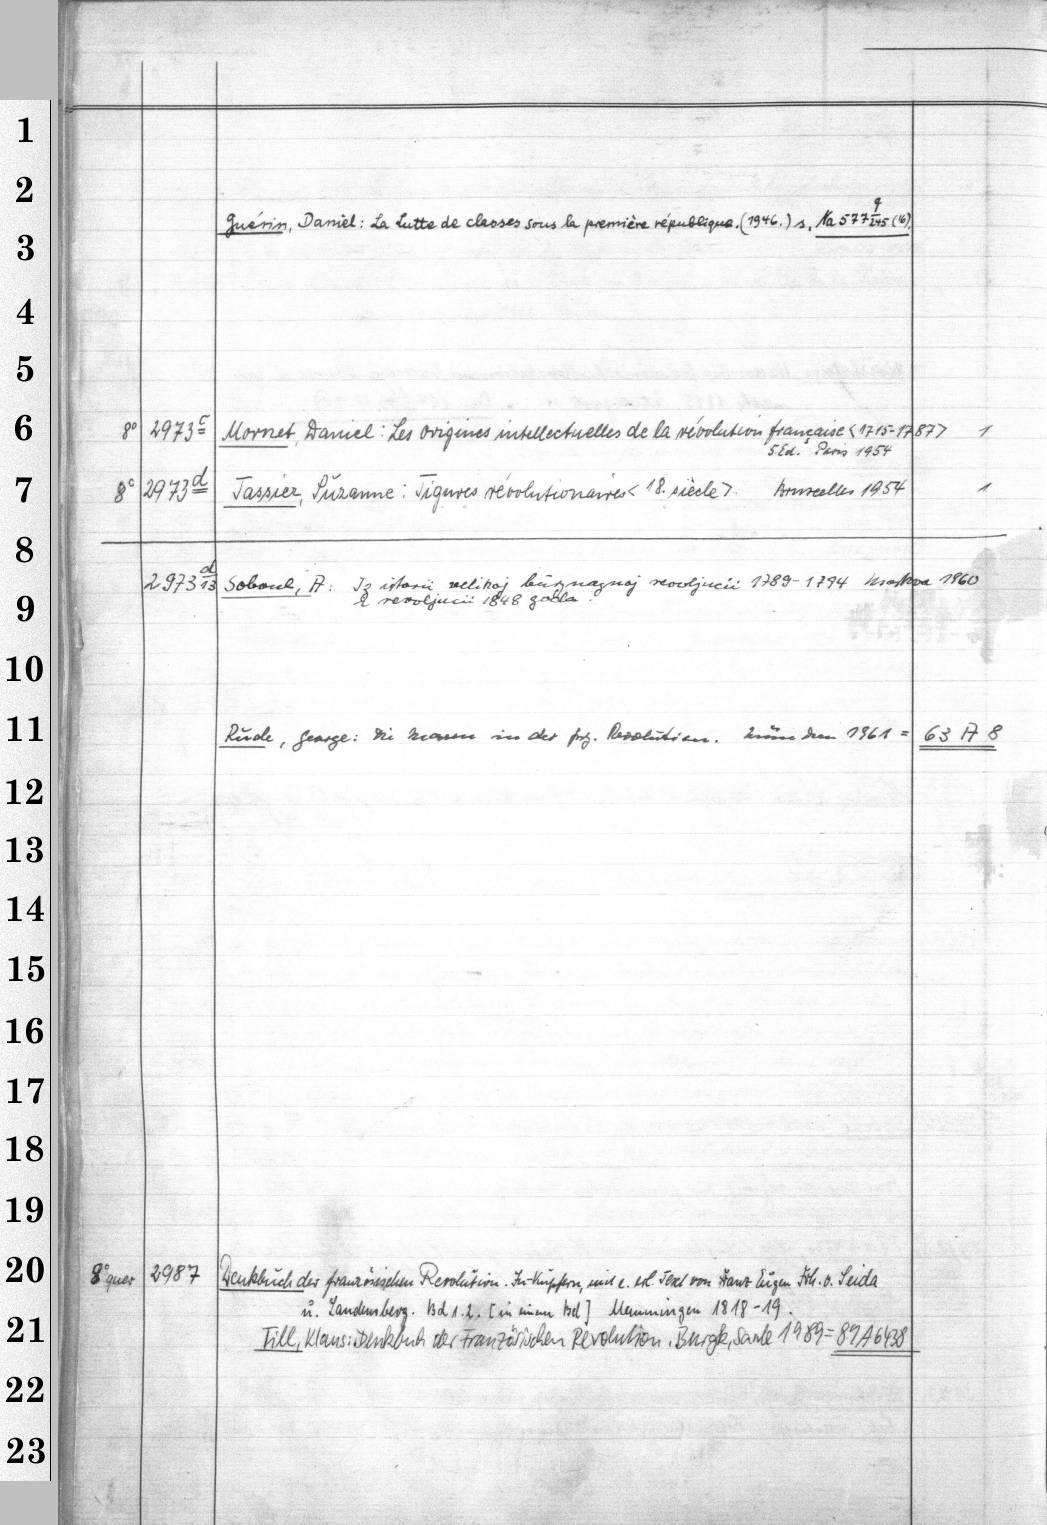 1
2
Guérin, Daniel: La Lutte de classes sous la première république. (1946.) s. Na 577 9/245 (16)
3
4
5
6 8° 2973 c Mornet, Daniel: Les origines intellectuelles de la révolution française <1715-1787> 1
5. Ed. Paris 1954
7 8° 2973 d Tassier, Suzanne: Figures révolutionaires <18. siècle>. Bruxelles 1954 1
8
2973 d/13 Soboul, A: Iz istorii velikoj buržuaznoj revoljucii 1789-1794 Moskva 1960
9 revoljucii 1848 goda.
10
11 Rude, George: Die Massen in der frz. Revolution. München 1961 = 63 A 8
12
13
14
15
16
17
18
19
20 8° quer 2987 Denkbuch der französischen Revolution. In Kupfern, mit e. erl. Text von Franz Eugen Frh. v. Seida
u. Landensberg. Bd 1.2. [in einem Bd] Memmingen 1818-19.
21 Till, Klaus: Denkbuch der Französischen Revolution. Burgk, Saale 1989 = 89 A 6438
22
23